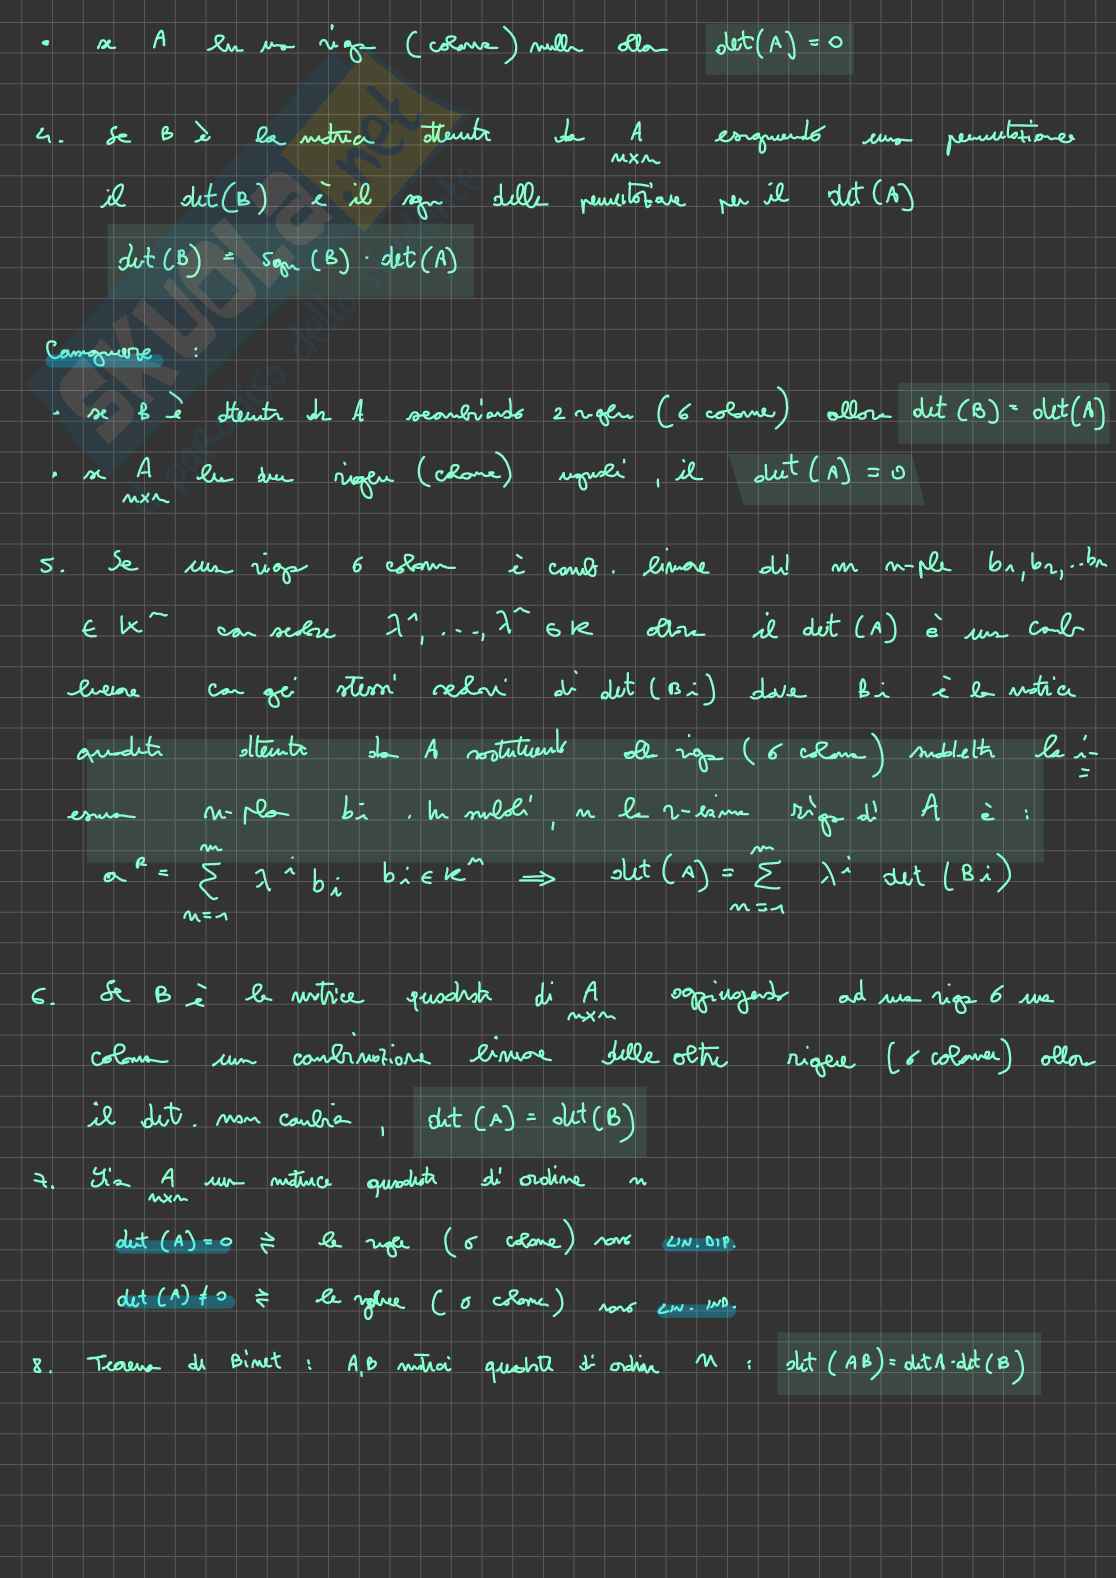 • se A ha una riga (colonna) nulla allora det(A) = 0
4. Se B è la matrice ottenuta da A n×n eseguendo una permutazione
il det(B) è il sgn della permutazione per il det(A)
det(B) = sgn(B) · det(A)
Conseguenze :
• se B è ottenuta da A scambiando 2 righe (o colonne) allora det(B) = det(A)
• se A n×n ha due righe (colonne) uguali, il det(A) = 0
5. Se una riga o colonna è comb. lineare di m n-ple b1, b2, ..bn
∈ K^n con scalare λ^1, ..., λ^n ∈ K allora il det(A) è una comb
lineare con gli stessi scalari di det(Bi) dove Bi è la matrice
quadrata ottenuta da A sostituendo alla riga (o colonna) suddetta la i-
esima n-pla bi. In simboli, se la r-esima riga di A è :
a^R = ∑_{n=1}^{m} λ^i bi bi ∈ K^n ⟹ det(A) = ∑_{n=1}^{m} λ^i det(Bi)
6. Se B è la matrice quadrata di A n×n aggiungendo ad una riga o una
colonna una combinazione lineare delle altre righe (o colonne) allora
il det. non cambia, det(A) = det(B)
7. Sia A n×n una matrice quadrata di ordine n
det(A) = 0 ⇄ le righe (o colonne) sono LIN. DIP.
det(A) ≠ 0 ⇄ le righe (o colonne) sono LIN. IND.
8. Teorema di Binet : A,B matrici quadrate di ordine n : det(AB) = det A · det(B)
SKUOLA.net